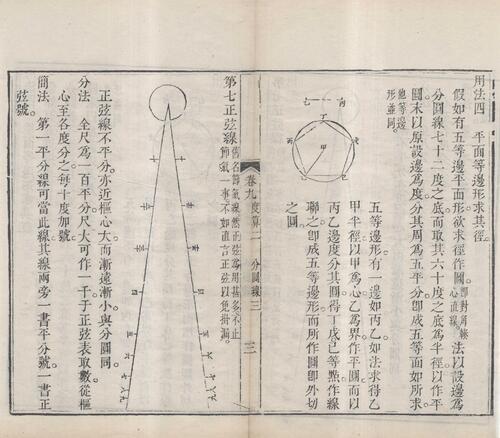 用法四　平面等邊形求其徑
假如有五等邊平面形欲求徑作圜 法以設邊為
分圜線七十二度之底而取其六十度之底為半徑以作平
圜末以原設邊為度分其周為五平分即成五等面如所求
他等邊
形並同
丙
七
丁
丙
戊
甲
乙
己
五等邊形有一邊如丙乙如法求得乙
甲半徑以甲為心乙為界作平圜而以
丙乙邊度分其圜得丁戊巳等㸃作線
聯之即成五等邊形而所作圜即外切
之圜
卷九 度算二 分圜線 三
三
第七正弦線
舊名節氣線然正弦為用甚多不止
節氣一事不如直言正弦以免掛漏
正弦線不平分亦近樞心大而漸遠漸小與分圜同
分法　全尺為一百平分尺大可作一千于正弦表取數從樞
心至各度分之每十度加號
簡法　第一平分線可當此線其線兩旁一書平分號一書正
弦號